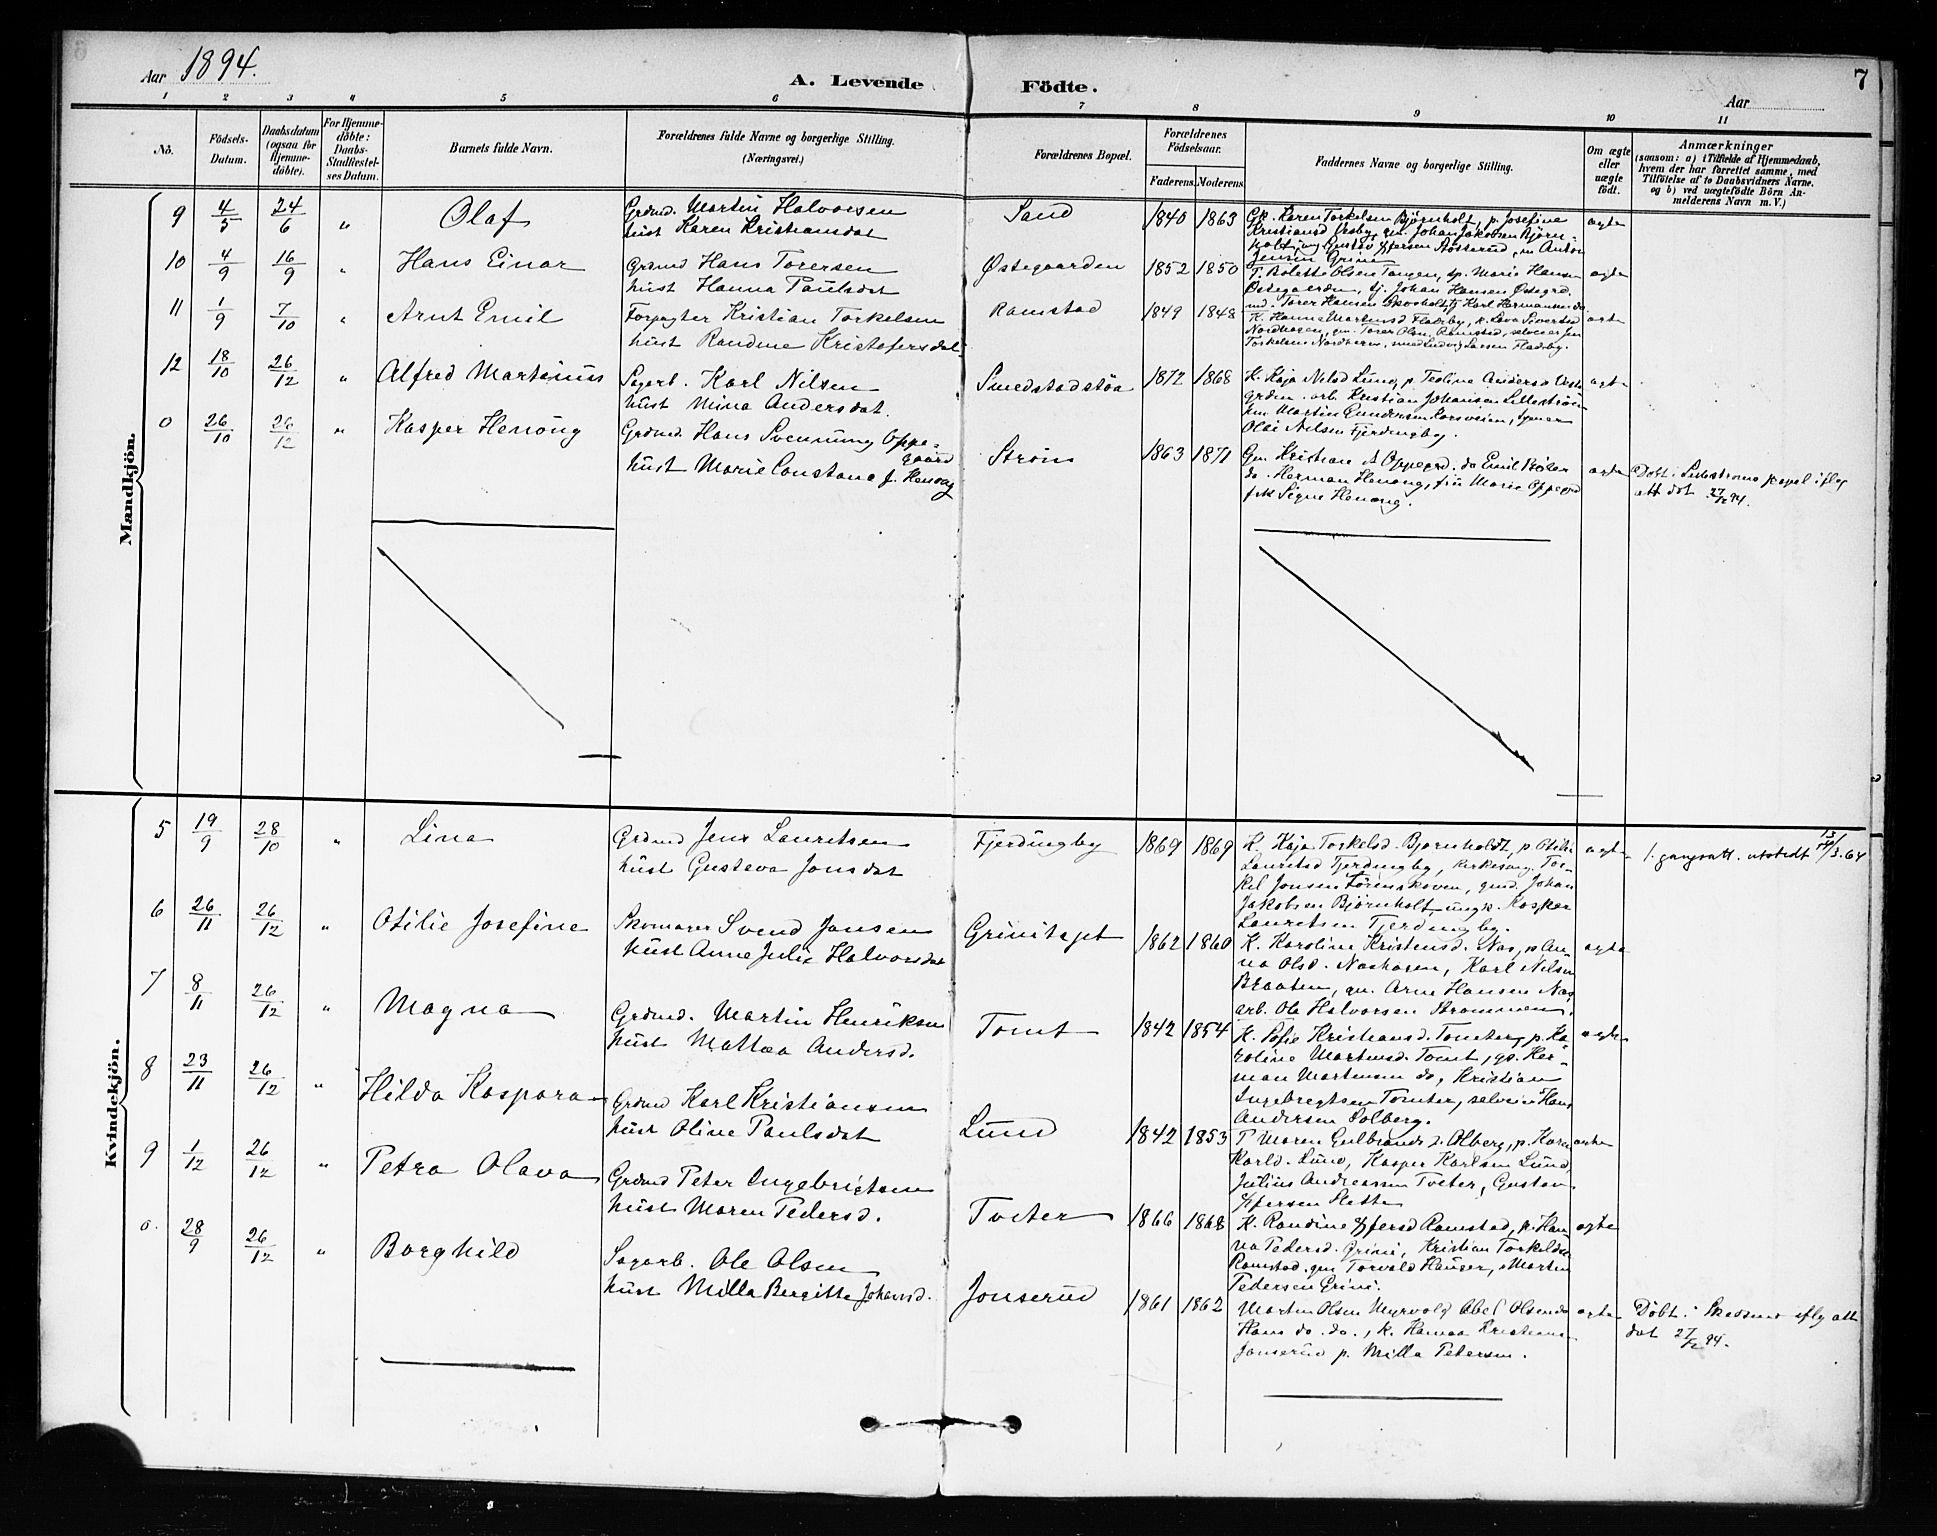 Aar 1894.
A. Levende Födte.
7
Aar
1 2 3 4 5 6 7 8 9 10 11
Nö.
Födsels-Datum.
Daabsdatum (ogsaa for Hjemme-döbte).
For Hjemme-döbte: Daabs-Stadfæstel-ses Datum.
Barnets fulde Navn.
Forældrenes fulde Navne og borgerlige Stilling. (Næringsvei.)
Forældrenes Bopæl.
Forældrenes Födselsaar.
Faderens. Moderens.
Faddernes Navne og borgerlige Stilling.
Om ægte eller uægte födt.
Anmærkninger
(saasom: a) i Tilfælde af Hjemmedaab, hvem der har forrettet samme, med Tilföielse af to Daabsvidners Navne, og b) ved uægtefödte Börn An-melderens Navn m. V.)
Mandkjön.
9 4/5 24/6 " Olaf
Grdmd. Martin Halvorsen
hust Karen Kristiansdat
Sand 1840 1863
Kristiansd Vesby, gm. Johan Jakobsen Bjørn-
holt, ug Gustav Jensen Grini
ægte
10 4/9 16/9 " Hans Einar
Grdmd Hans Torersen
hust Hanna Paulsdat
Østegaarden 1852 1850
T. Bolette Olsen Tangen, sp. Marie Hansen
Østegaarden, sj. Johan Hansen Østegrd
ægte
11 1/9 7/10 " Arnt Emil
Forpagter Kristian Torkelsen
hust Randine Kristofersdat
Ramstad 1849 1848
Nordhagen, gm. Torer Olsn. Ramstad, selveier
Torkelsen Nordhagen, Ludvig Larsen Fladeby.
ægte
12 18/10 26/12 " Alfred Martinius
Sagarb. Karl Nilsen
hust Mina Andersdat.
Smedstadstøa 1872 1868
K. Kaja Nilsd Lund, p. Teoline Andersd
arb. Kristian Johansen Lillestrøm
Martin Gundersen Korsveien,
Olai Nilsen Fjerdingby.
ægte
0 26/10 26/12 " Kasper Henöng
Grdmd. Hans Svenning Oppe-
gaard
hust Marie Constance f. Henöng
Strøm 1863 1871
Gm Kristian A Oppegrd. do Emil
do. Herman Henöng, frü Marie Oppegrd
frk Signe Henöng.
ægte
Døbt i Lillestrøms kapel iflg
att dat 27/12 94.
Kvindekjön.
5 19/9 28/10 " Lina
Grdmd Jens Lauritsen
hust Gusteva Jonsdat
Fjerdingby 1869 1869
K. Kaja Torkelsd. Bjørnholdt, p. Otilie
Lauritsd Fjerdingby, kirkesang. Tor-
kel Jonsen Tørenskoven, gmd. Johan
Jakobsen Bjørnholt, ungk. Kasper
Lauritsen Fjerdingby.
ægte
1. gangsatt. utstedt 13/3.64
6 26/11 26/12 " Otilie Josefine
Skomager Svend Jansen
hust Anne Julie Halvorsdat
Grinitajet 1862 1860
K. Karoline Kristensd. Næs, p An-
na Olsd. Næshagen, Karl Nilsen
Braaten, gm. Arne Hansen Næs,
arb. Ole Halvorsen Strømmen.
ægte
7 8/11 26/12 " Magna
Grdmd. Martin Henriksen
hust Mattea Andersd.
Tomt 1842 1854
K. Sofie Kristiansd. Tomter, p. Ka-
roline Martinsd. Tomt, gp. Her-
man Martinsen do, Kristian
Ingebregtsen Tomter, selveier Hans
Andersen Solberg.
ægte
8 23/11 26/12 " Hilda Kaspara
Grdmd Karl Kristiansen
hust Oline Paulsdat
Lund 1842 1853
T Maren Gulbrands d. Olberg, p. Karen
Karlsd. Lund, Kasper Karlsen Lund,
Julius Andreassen Tveter, Gustav
Slette
ægte
9 1/12 26/12 " Petra Olava
Grdmd Peter Ingebrigtsen
hust Maren Pedersd.
Tveter 1866 1868
K. Randine Ramstad, p. Han-
na Pedersd. Grini, Kristian Torkeldsen
Ramstad, gm Torvald Hauger, Martin
Pedersen Grini.
ægte
0. 28/9 26/12 " Borghild
Sagarb. Ole Olsen
hust Milla Bergitte Johansd.
Jonserud 1861 1862
Martin Olsen Myrvold Abel Olsen do
Hans do. do., k. Hanna Kristians
Jonserud p. Milla Petersen.
ægte
Døbt i Skedsmo iflg att
dat 27/12 94.